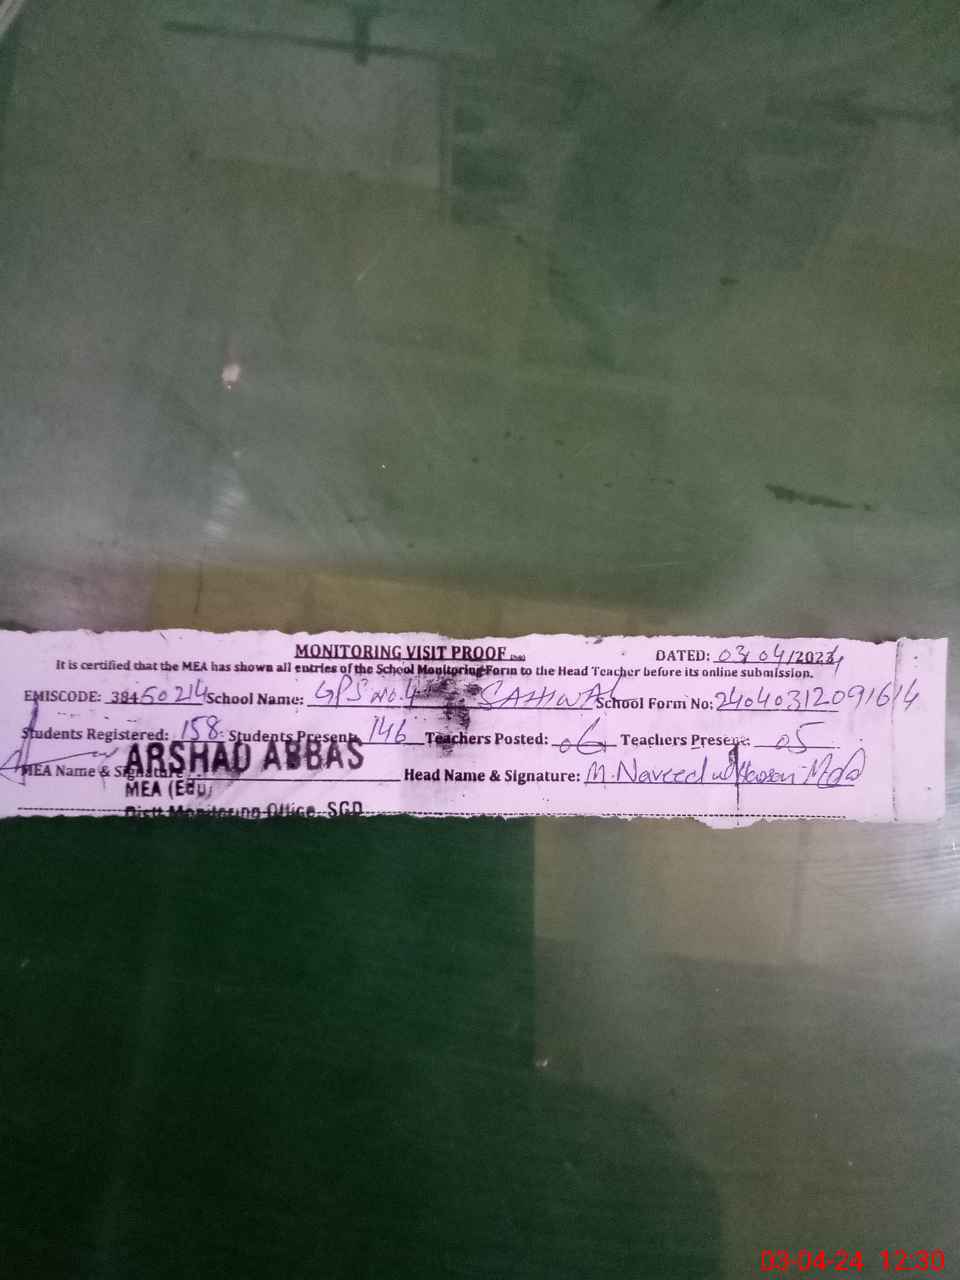 MONITORING VISIT PROOF
DATED: 03/04/2024
It is certified that the MEA has shown all entries of the School Monitoring Form to the Head Teacher before its online submission.
EMISCODE: 38450214 School Name: GPS No.4 SAHIWAL School Form No: 24040312091614
Students Registered: 158 Students Present: 146 Teachers Posted: 06 Teachers Present: 05
MEA Name & Signature ARSHAD ABBAS Head Name & Signature: M. Naveed ul Hassan
MEA (Edu)
Distt Monitoring Office SGD
03-04-24 12:30